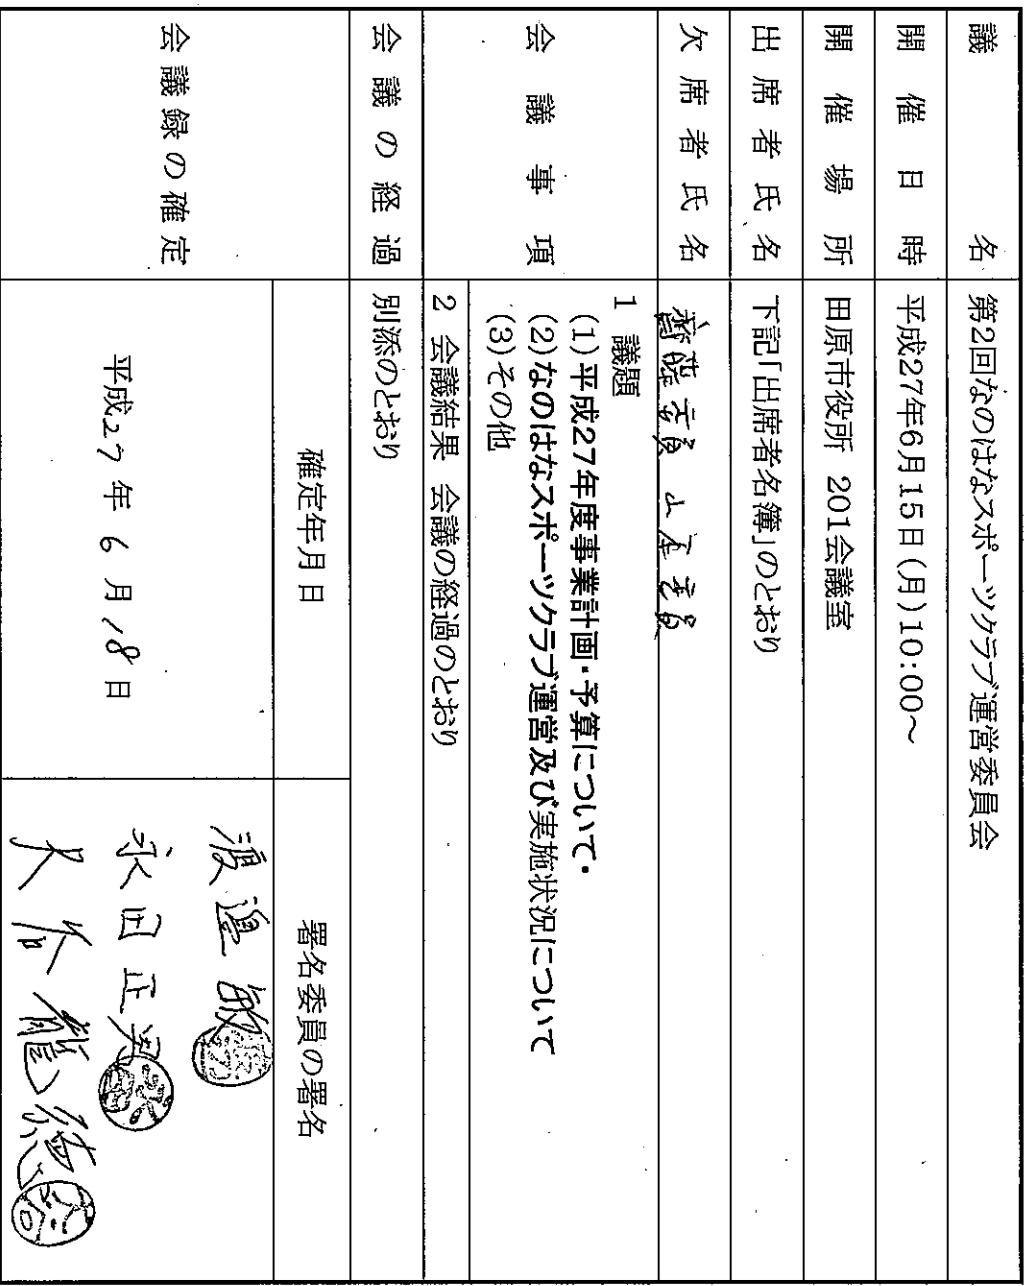 議名 第2回なのはなスポーツクラブ運営委員会
開催日時 平成27年6月15日(月)10:00～
開催場所 田原市役所 201会議室
出席者氏名 下記「出席者名簿」のとおり
欠席者氏名 齋藤委員 山本委員
会議事項 1 議題
(1)平成27年度事業計画・予算について・
(2)なのはなスポーツクラブ運営及び実施状況について
(3)その他
2 会議結果 会議の経過のとおり
会議の経過 別添のとおり
会議録の確定 確定年月日 署名委員の署名
平成27年6月18日
渡邉 敏
永田正
大谷龍